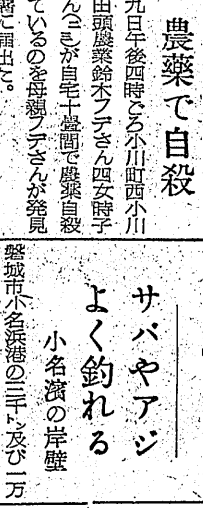 農薬で自殺
九日午後四時ごろ小川町西小川
田頭農業鈴木フデさん四女時子
ん(二三)が自宅十畳間で農薬自殺
ているのを母親フデさんが発見
署に届出た。
サバやアジ
よく釣れる
小名濱の岸壁
磐城市小名浜港の三千トン及び一万